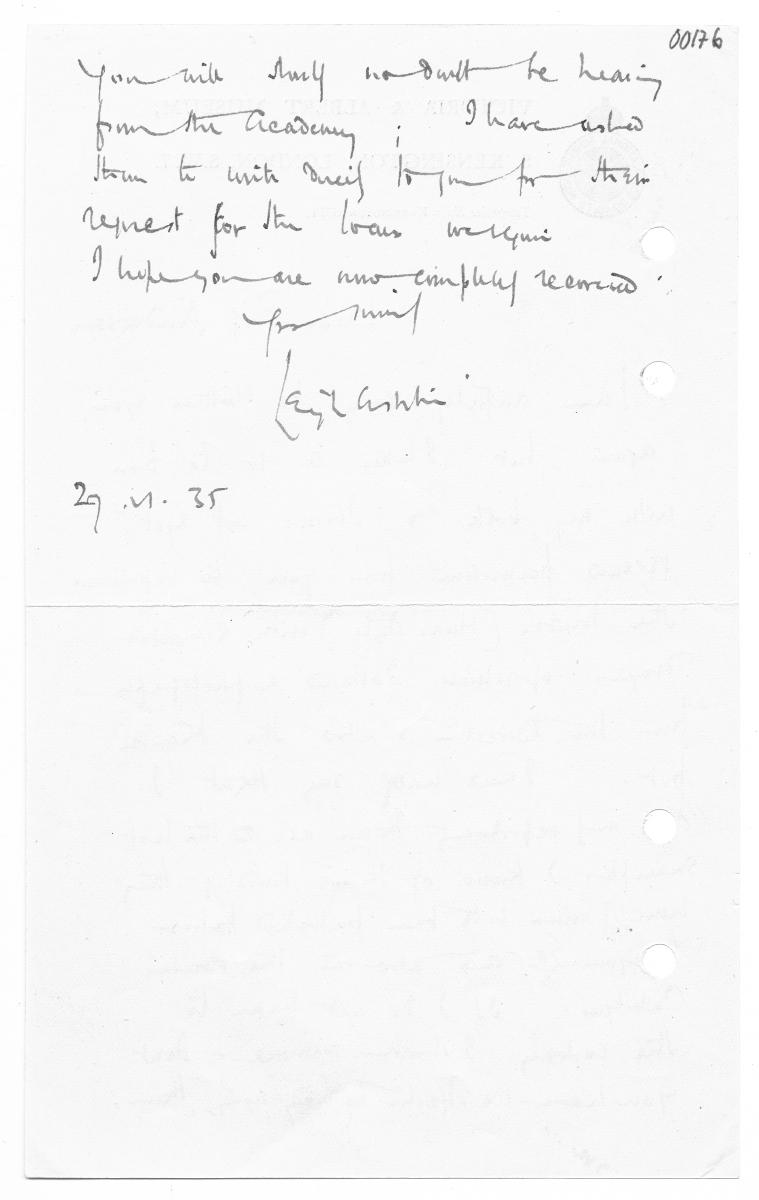 00176
You will shortly no doubt be hearing
from the Academy ; I have asked
them to write direct to you for their
request for the loans we require
I hope you are now completely recovered .
Yrs sincerely
Leigh Ashton
29 . vi . 35